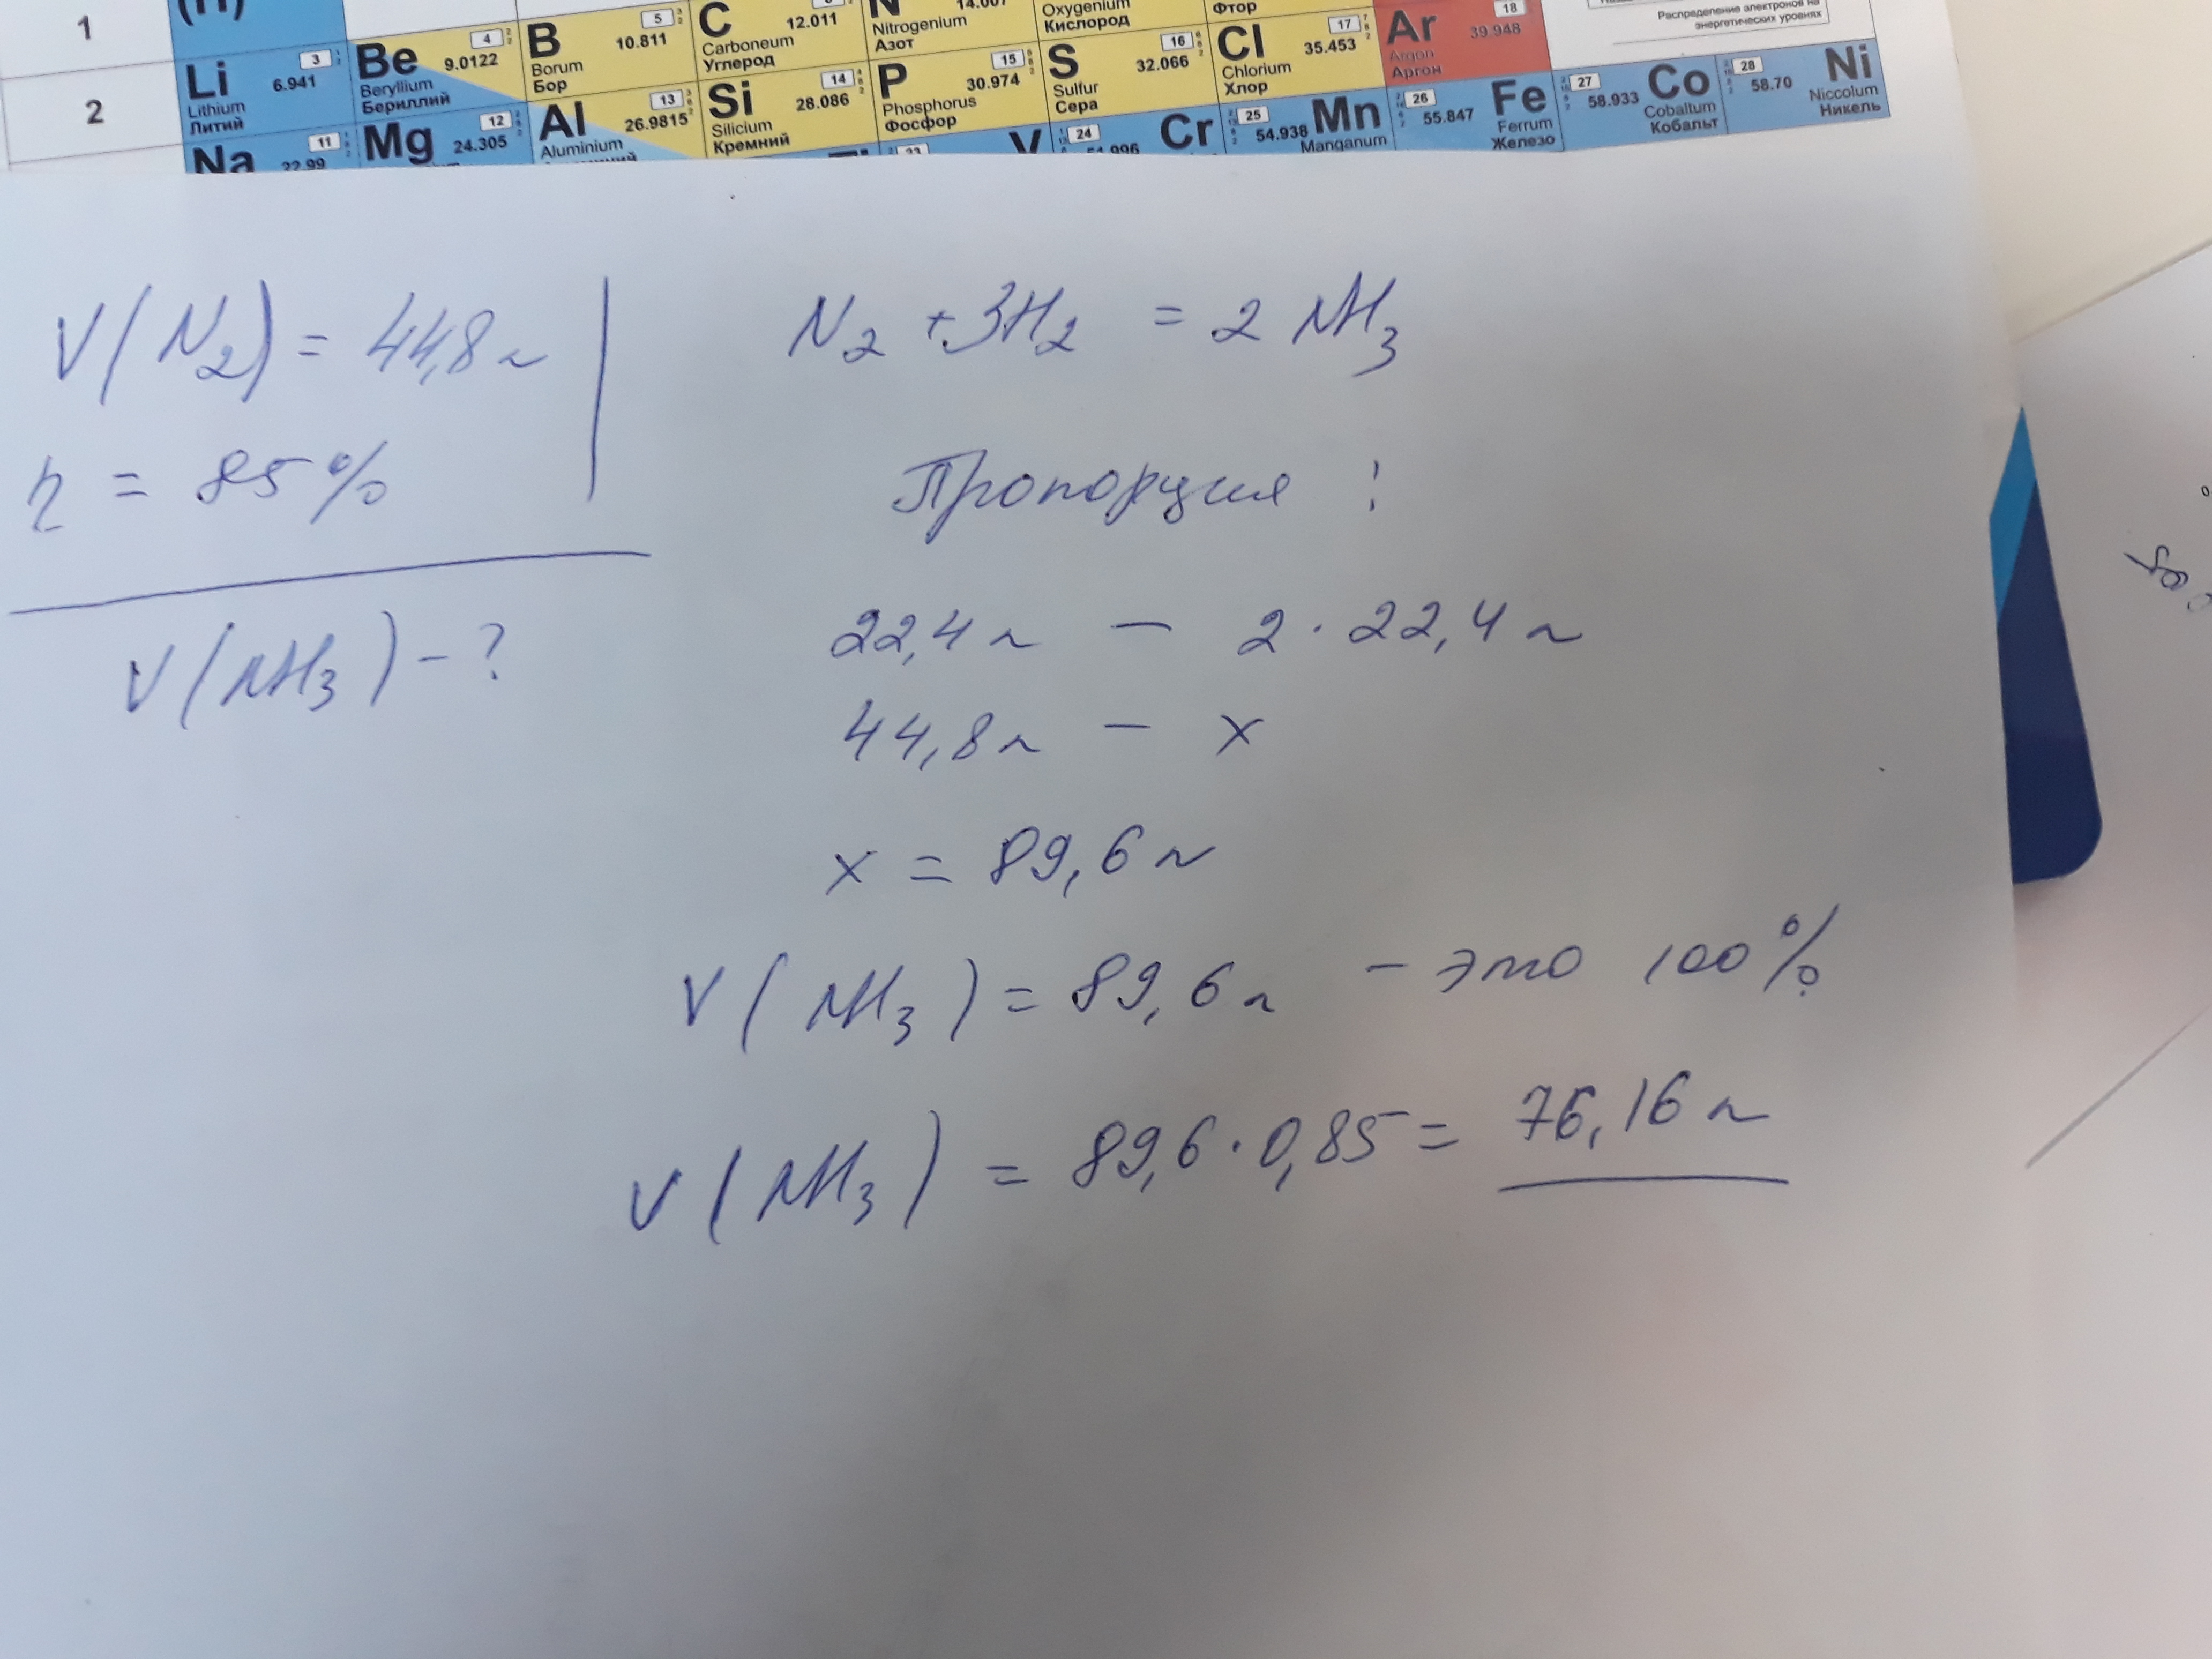 1
(H)
5
B
10.811
Borum
Бор
C
12.011
Carboneum
Углерод
N
14.007
Nitrogenium
Азот
Oxygenium
Кислород
Фтор
18
Ar
39.948
Argon
Аргон
Распределение электронов на
энергетических уровнях
2
3
Li
6.941
Lithium
Литий
4
Be
9.0122
Beryllium
Бериллий
13
Al
26.9815
Aluminium
14
Si
28.086
Silicium
Кремний
15
P
30.974
Phosphorus
Фосфор
16
S
32.066
Sulfur
Сера
17
Cl
35.453
Chlorium
Хлор
11
Na
22.99
12
Mg
24.305
23
V
24
Cr
51.996
25
Mn
54.938
Manganum
26
Fe
55.847
Ferrum
Железо
27
Co
58.933
Cobaltum
Кобальт
28
Ni
58.70
Niccolum
Никель
V(N₂) = 44,8 л
η = 85%
V(NH₃) - ?
N₂ + 3H₂ = 2 NH₃
Пропорция :
22,4 л — 2 · 22,4 л
44,8 л — x
x = 89,6 л
V(NH₃) = 89,6 л — это 100%
V(NH₃) = 89,6 · 0,85 = 76,16 л